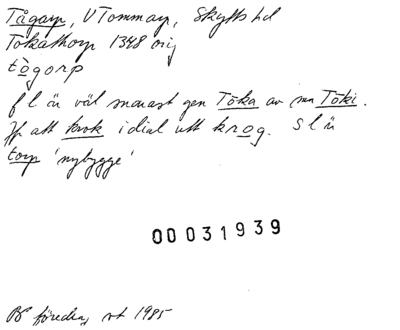 Tågarp, V Tommarp, Skytts hd
Tokathorp 1348 orig
tògorp
f l är väl snarast gen Toka av mn Toki.
Jfr att krok i dial utt krog. s l är
torp 'nybygge'
00031939
BP föredrag vt 1985